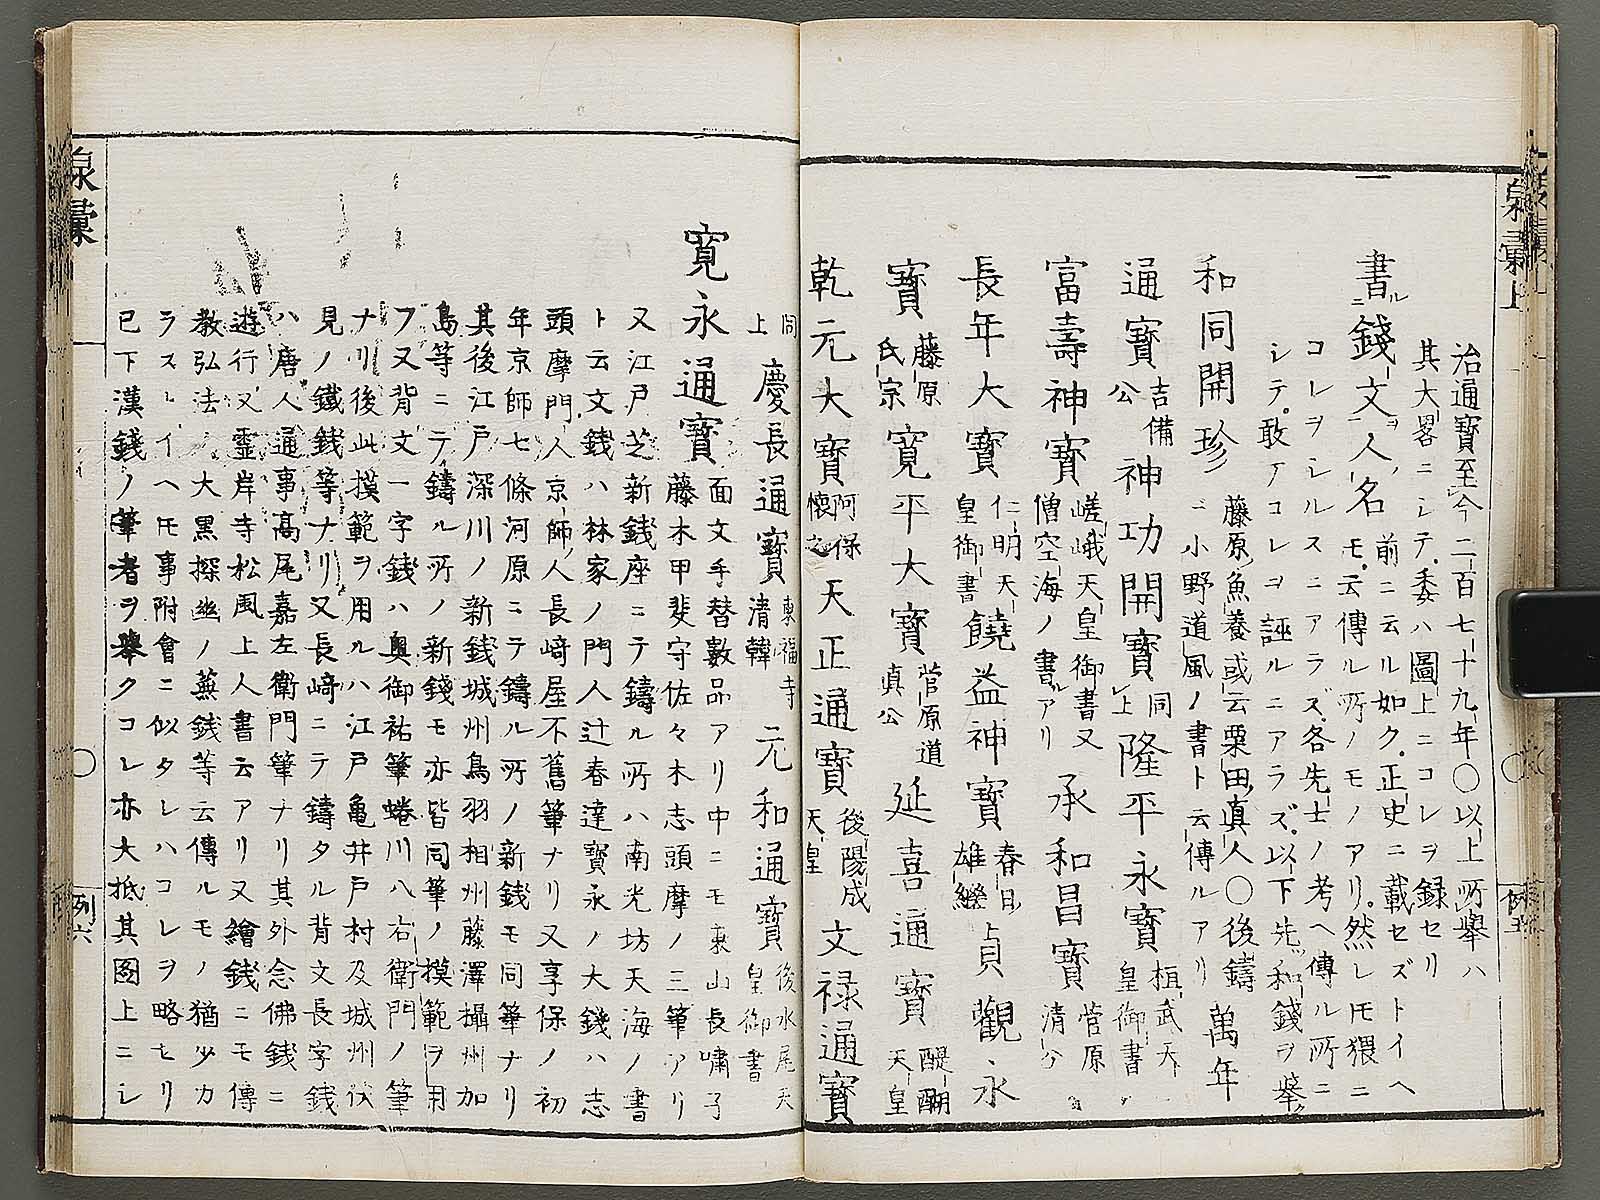 泉彙上
治通寶至今二百七十九年〇以上所擧ハ
其大畧ニシテ委ハ圖上ニコレヲ録セリ
書ルニ錢文ヲ人名 前ニ云ル如ク正史ニ載セズトイヘ
𪜈云傳ル所ノモノアリ然レ𪜈猥ニ
コレヲシルスニアラズ各先士ノ考ヘ傳ル所ニ
シテ敢テコレヲ誣ルニアラズ以下先和錢ヲ擧
和同開珍 藤原魚養或云粟田真人〇後鑄
ニ小野道風ノ書ト云傳ルアリ 萬年
通寶 吉備公 神功開寶 同上 隆平永寶 桓武天皇御書
富壽神寶 嵯峨天皇御書又僧空海ノ書アリ 承和昌寶 菅原清公
長年大寶 仁明天皇御書 饒益神寶 春日雄繼 貞觀永
寶 藤原氏宗 寛平大寶 菅原道真公 延喜通寶 醍醐天皇
乾元大寶 阿保懷之 天正通寶 後陽成天皇 文禄通寶
同上 慶長通寶 東福寺清韓 元和通寶 後水尾天皇御書
寛永通寶 面文手替數品アリ中ニモ東山長嘯子
藤木甲斐守佐々木志頭摩ノ三筆アリ
又江戸芝新銭座ニテ鑄ル所ハ南光坊天海ノ書
ト云文銭ハ林家ノ門人辻春達寳永ノ大錢ハ志
頭摩門人京師ノ人長﨑屋不舊筆ナリ又享保ノ初
年京師七條河原ニテ鑄ル所ノ新銭モ同筆ナリ
其後江戸深川ノ新銭城州鳥羽相州藤澤攝州加
島等ニテ鑄ル所ノ新錢モ亦皆同筆ノ摸範ヲ用
フ又背文一字銭ハ奥御祐筆蜷川八右衛門ノ筆
ナリ後此摸範ヲ用ルハ江戸亀井戸村及城州伏
見ノ鐵銭等ナリ又長﨑ニテ鑄タル背文長字銭
ハ唐人通事高尾嘉左衛門筆ナリ其外念佛銭ニ
遊行又霊岸寺松風上人書云アリ又繪銭ニモ傳
教弘法ノ大黒探幽ノ蕪銭等云傳ルモノ猶少カ
ラストイヘ𪜈事附會ニ似タレハコレヲ略セリ
已下漢錢ノ筆者ヲ擧クコレ亦大抵其圖上ニシ
泉彙
例六